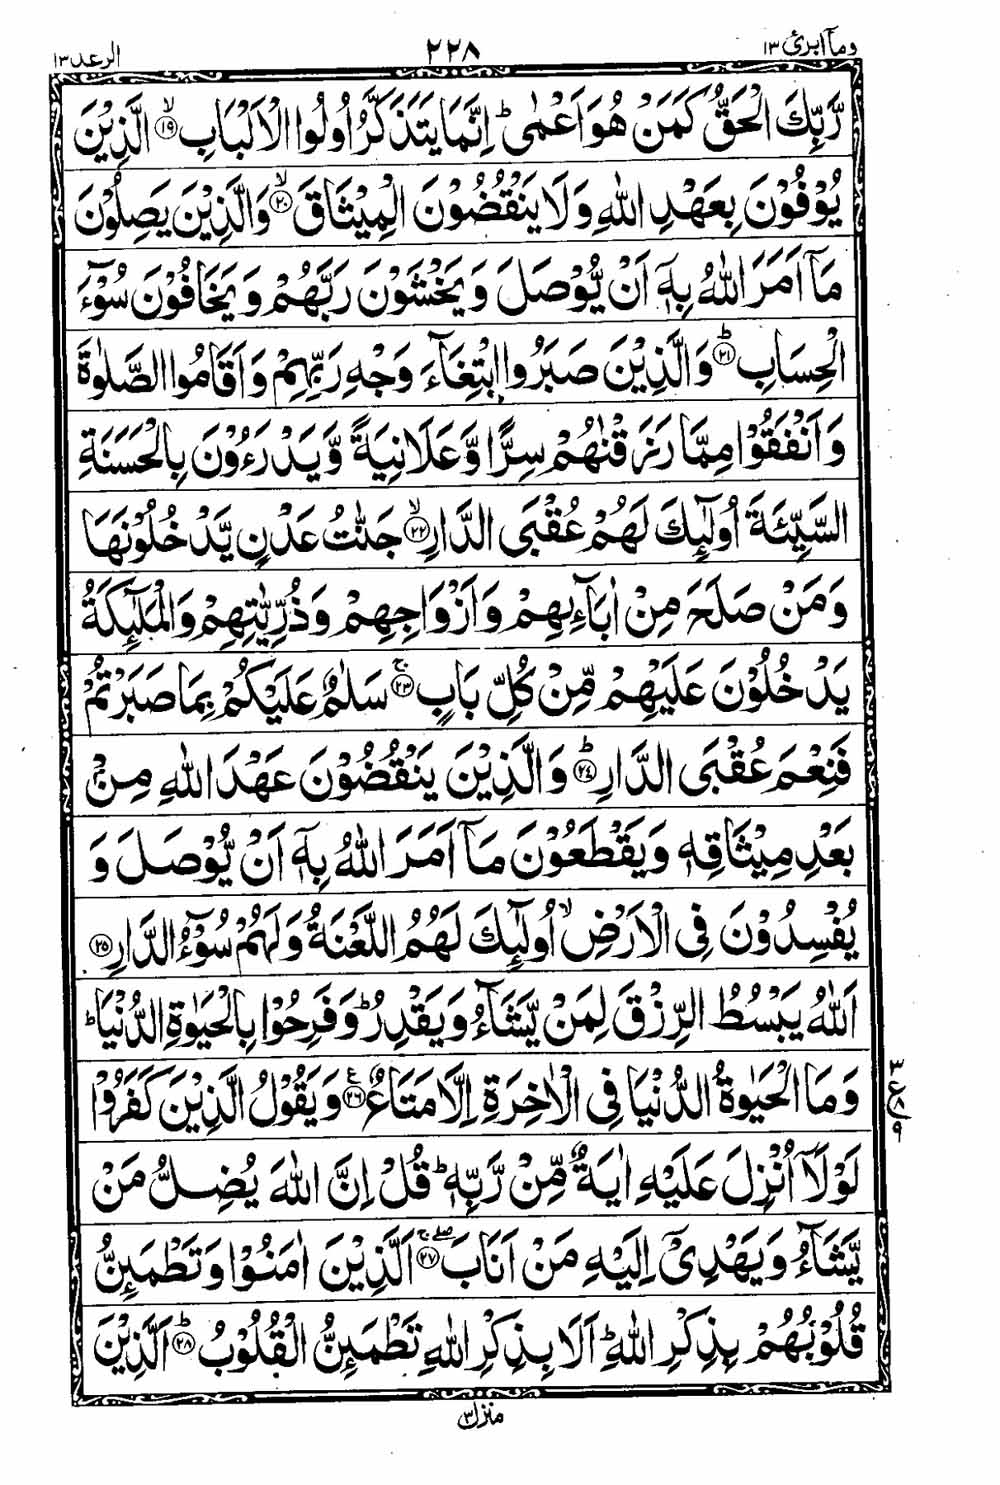 وما ابرئ ١٣ ٢٢٨ الرعد ١٣
رَّبِّكَ الْحَقُّ كَمَنْ هُوَ اَعْمٰىؕ اِنَّمَا يَتَذَكَّرُ اُولُوا الْاَلْبَابِۙ‏﴿۱۹﴾ الَّذِيْنَ
يُوْفُوْنَ بِعَهْدِ اللّٰهِ وَلَا يَنْقُضُوْنَ الْمِيْثَاقَۙ‏﴿۲۰﴾ وَالَّذِيْنَ يَصِلُوْنَ
مَاۤ اَمَرَ اللّٰهُ بِهٖۤ اَنْ يُّوْصَلَ وَيَخْشَوْنَ رَبَّهُمْ وَيَخَافُوْنَ سُوْٓءَ
الْحِسَابِؕ‏﴿۲۱﴾ وَالَّذِيْنَ صَبَرُوا ابْتِغَآءَ وَجْهِ رَبِّهِمْ وَاَقَامُوا الصَّلٰوةَ
وَاَنْفَقُوْا مِمَّا رَزَقْنٰهُمْ سِرًّا وَّعَلَانِيَةً وَّيَدْرَءُوْنَ بِالْحَسَنَةِ
السَّيِّئَةَ اُولٰٓئِكَ لَهُمْ عُقْبَى الدَّارِۙ‏﴿۲۲﴾ جَنّٰتُ عَدْنٍ يَّدْخُلُوْنَهَا
وَمَنْ صَلَحَ مِنْ اٰبَآءِهِمْ وَاَزْوَاجِهِمْ وَذُرِّيّٰتِهِمْ وَالْمَلٰٓئِكَةُ
يَدْخُلُوْنَ عَلَيْهِمْ مِّنْ كُلِّ بَابٍۚ‏﴿۲۳﴾ سَلٰمٌ عَلَيْكُمْ بِمَا صَبَرْتُمْ
فَنِعْمَ عُقْبَى الدَّارِؕ‏﴿۲۴﴾ وَالَّذِيْنَ يَنْقُضُوْنَ عَهْدَ اللّٰهِ مِنْۢ
بَعْدِ مِيْثَاقِهٖ وَيَقْطَعُوْنَ مَاۤ اَمَرَ اللّٰهُ بِهٖۤ اَنْ يُّوْصَلَ وَ
يُفْسِدُوْنَ فِى الْاَرْضِۙ اُولٰٓئِكَ لَهُمُ اللَّعْنَةُ وَلَهُمْ سُوْٓءُ الدَّارِ‏﴿۲۵﴾
اَللّٰهُ يَبْسُطُ الرِّزْقَ لِمَنْ يَّشَآءُ وَيَقْدِرُؕ وَفَرِحُوْا بِالْحَيٰوةِ الدُّنْيَاؕ
وَمَا الْحَيٰوةُ الدُّنْيَا فِى الْاٰخِرَةِ اِلَّا مَتَاعٌ‏﴿۲۶﴾ع وَيَقُوْلُ الَّذِيْنَ كَفَرُوْا
لَوْلَاۤ اُنْزِلَ عَلَيْهِ اٰيَةٌ مِّنْ رَّبِّهٖؕ قُلْ اِنَّ اللّٰهَ يُضِلُّ مَنْ
يَّشَآءُ وَيَهْدِىْۤ اِلَيْهِ مَنْ اَنَابَۖۚ‏﴿۲۷﴾ اَلَّذِيْنَ اٰمَنُوْا وَتَطْمَئِنُّ
قُلُوْبُهُمْ بِذِكْرِ اللّٰهِؕ اَلَا بِذِكْرِ اللّٰهِ تَطْمَئِنُّ الْقُلُوْبُؕ‏﴿۲۸﴾ اَلَّذِيْنَ
٣ ع ٨ ٩
منزل ٣